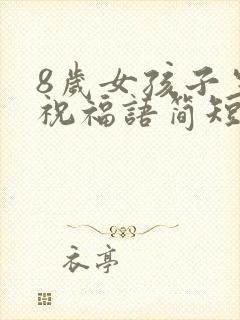 8歲女孩子生
祝福語简短
衣亭